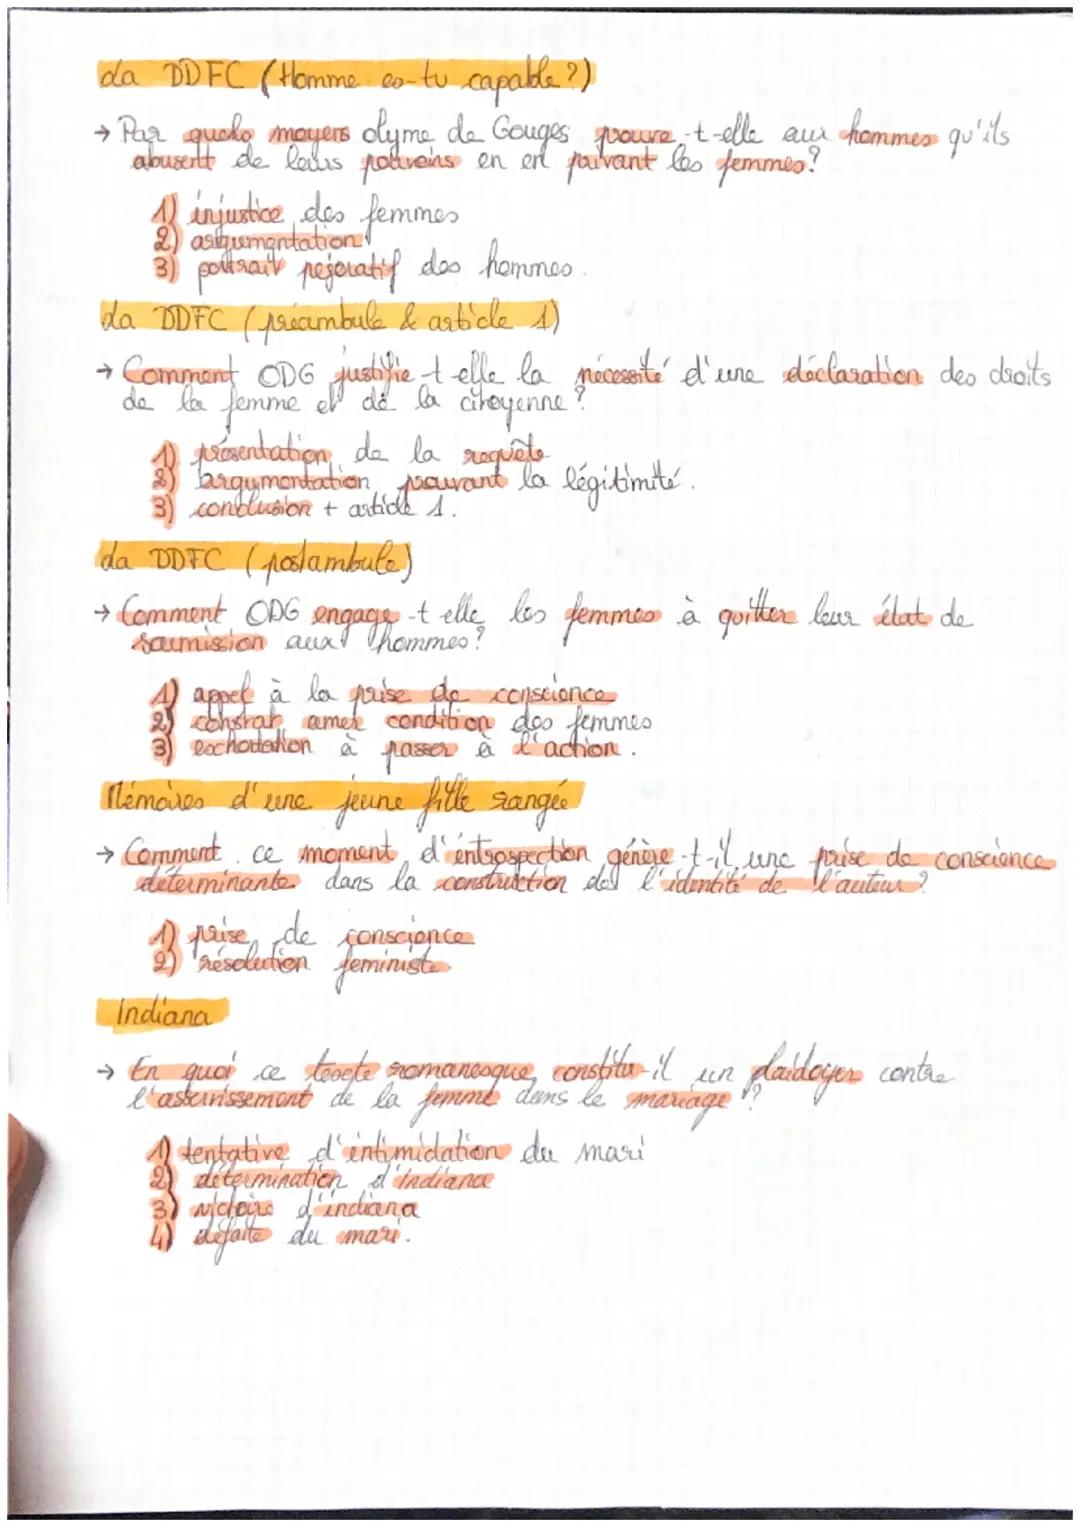 La DDFC (Homme es-tu capable ?)
→ Par quels moyens olyme de Gouges prouve-t-elle aux hommes qu'ils
abusent de leurs pouvoirs en en privant les femmes ?
1) injustice des femmes
2) argumentation
3) portrait péjoratif des hommes.
La DDFC (préambule & article 1)
→ Comment ODG justifie-t-elle la nécessité d'une déclaration des droits
de la femme et de la citoyenne ?
1) présentation de la requête
2) argumentation prouvant la légitimité.
3) conclusion + article 1.
La DDFC (postambule)
→ Comment ODG engage-t-elle les femmes à quitter leur état de
soumission aux hommes ?
1) appel à la prise de conscience
2) constat amer condition des femmes
3) exhortation à passer à l'action.
Mémoires d'une jeune fille rangée
→ Comment ce moment d'introspection génère-t-il une prise de conscience
déterminante dans la construction de l'identité de l'auteur ?
1) prise de conscience
2) résolution féministe
Indiana
→ En quoi ce texte romanesque constitu-il un plaidoyer contre
l'asservissement de la femme dans le mariage ?
1) tentative d'intimidation du mari
2) détermination d'indiana
3) victoire d'indiana
4) défaite du mari.